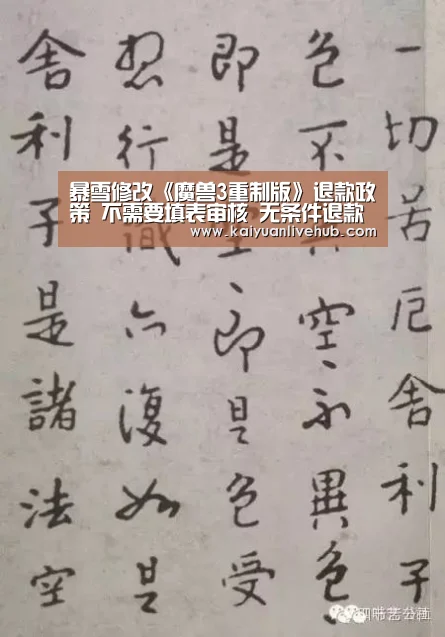 一切苦厄舍利子
色不異空、不異色
即是空、即是色受
想行識亦復如是
舍利子是諸法空
暴雪修改《魔兽3重制版》退款政
策 不需要填表审核 无条件退款
www.kaiyuanlivehub.com